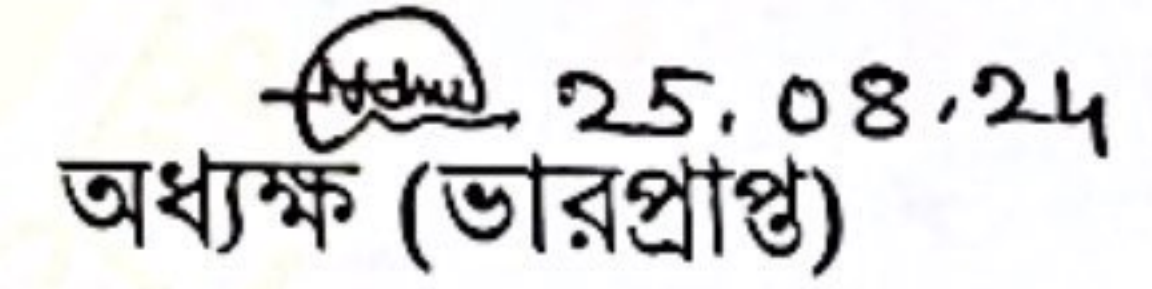 25.08.24
অধ্যক্ষ (ভারপ্রাপ্ত)